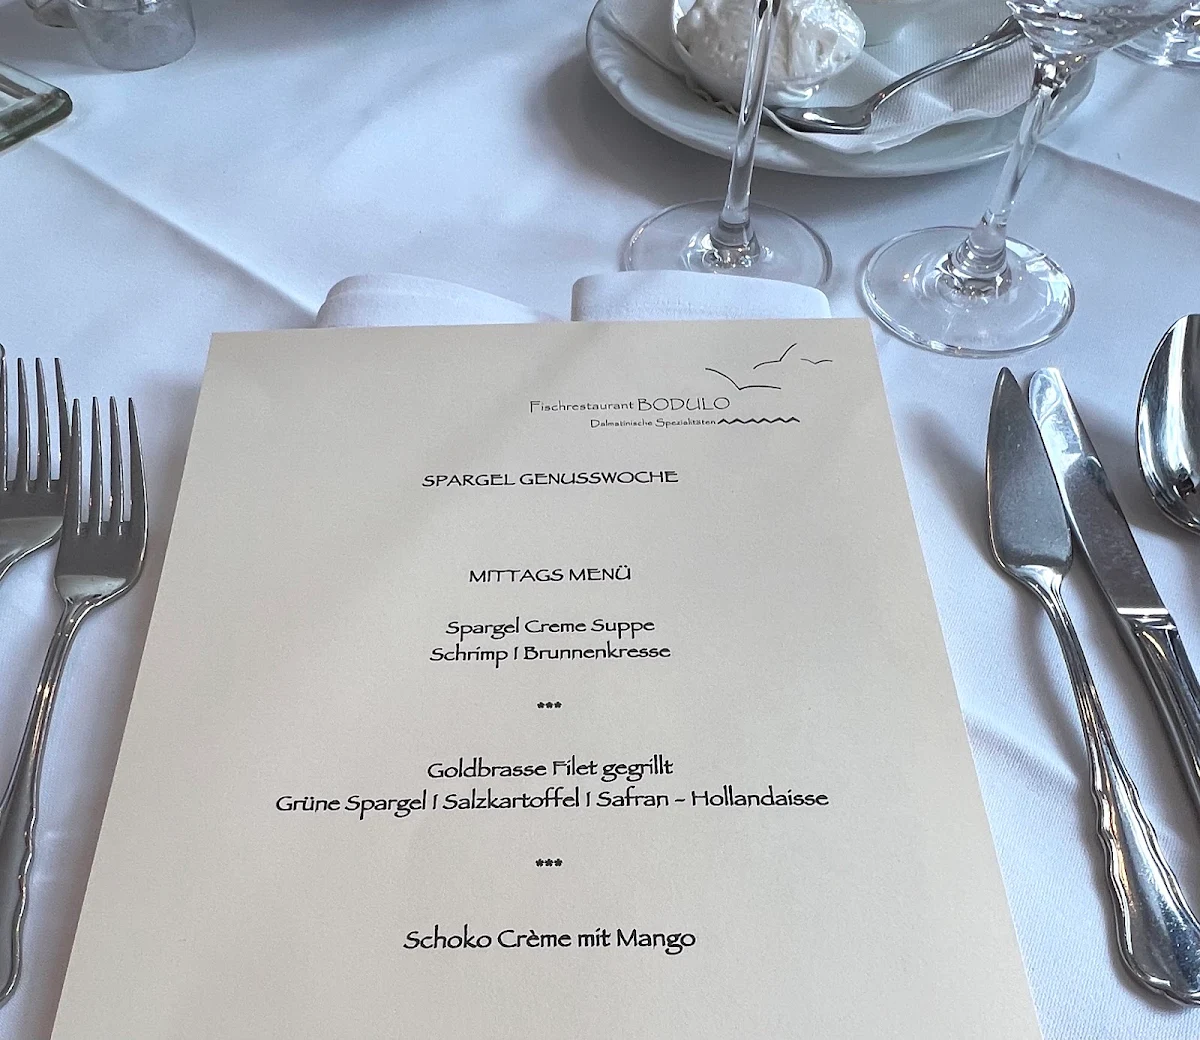 Fischrestaurant BODULO
Dalmatinische Spezialitäten
SPARGEL GENUSSWOCHE
MITTAGS MENÜ
Spargel Creme Suppe
Schrimp | Brunnenkresse
***
Goldbrasse Filet gegrillt
Grüne Spargel | Salzkartoffel | Safran - Hollandaisse
***
Schoko Crème mit Mango